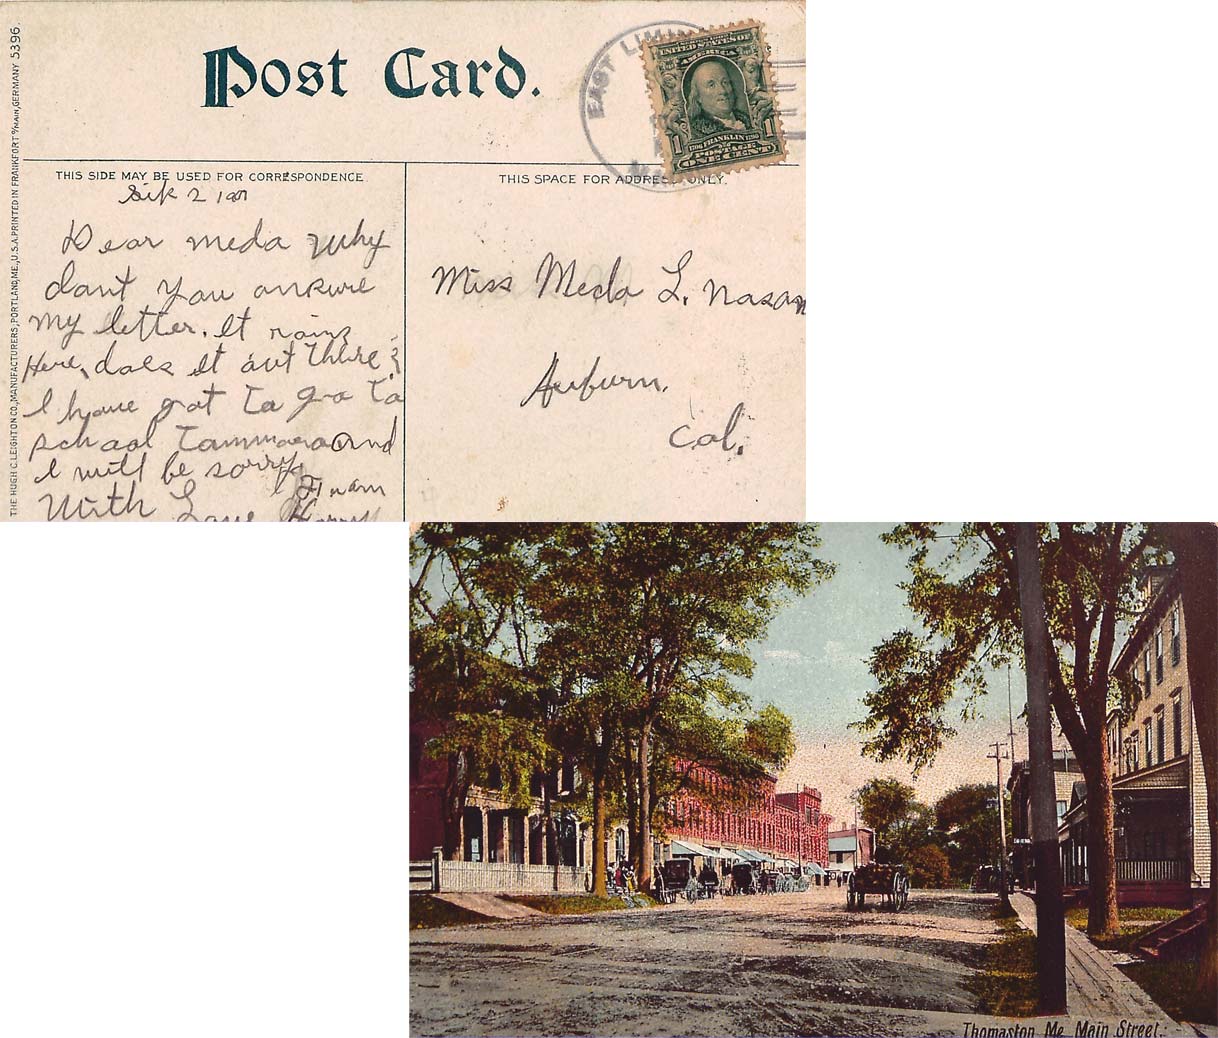 THE HUGH C. LEIGHTON CO., MANUFACTURERS, PORTLAND, ME., U.S.A. PRINTED IN FRANKFORT o/MAIN, GERMANY 5396.
Post Card.
EAST
UNITED STATES OF
AMERICA
1706 FRANKLIN 1790
1 1
POSTAGE
ONE CENT
THIS SIDE MAY BE USED FOR CORRESPONDENCE.
2 1907
Dear meda Why
dant you
my letter. It rains
Here, does it out there?
I have got to go to
school and
I will be sorry.
With Love
Harry
THIS SPACE FOR ADDRESS ONLY.
Miss Meda L. Nason
Auburn.
Cal.
Thomaston Me. Main Street.